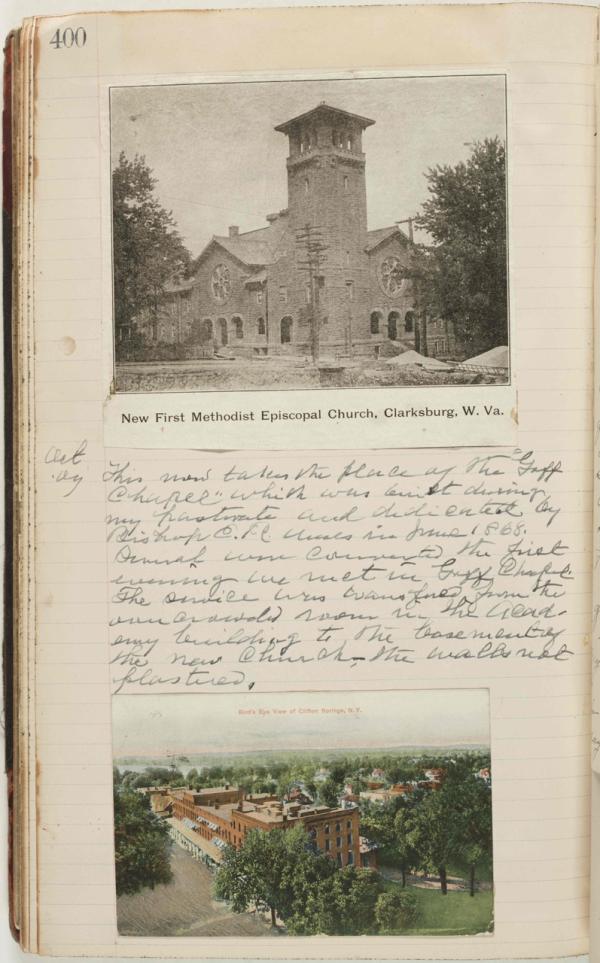 400
New First Methodist Episcopal Church, Clarksburg, W. Va.
Oct
09
This now takes the place of the "Goff
Chapel" which was built during
my pastorate and dedicated by
Bishop C. in June 1868.
Several were converted the first
evening we met in Goff Chapel.
The service was transfered from the
over crowded room in the Acad-
emy building to the basement of
the new Church — the walls not
plastered.
Bird's Eye View of Clifton Springs, N. Y.